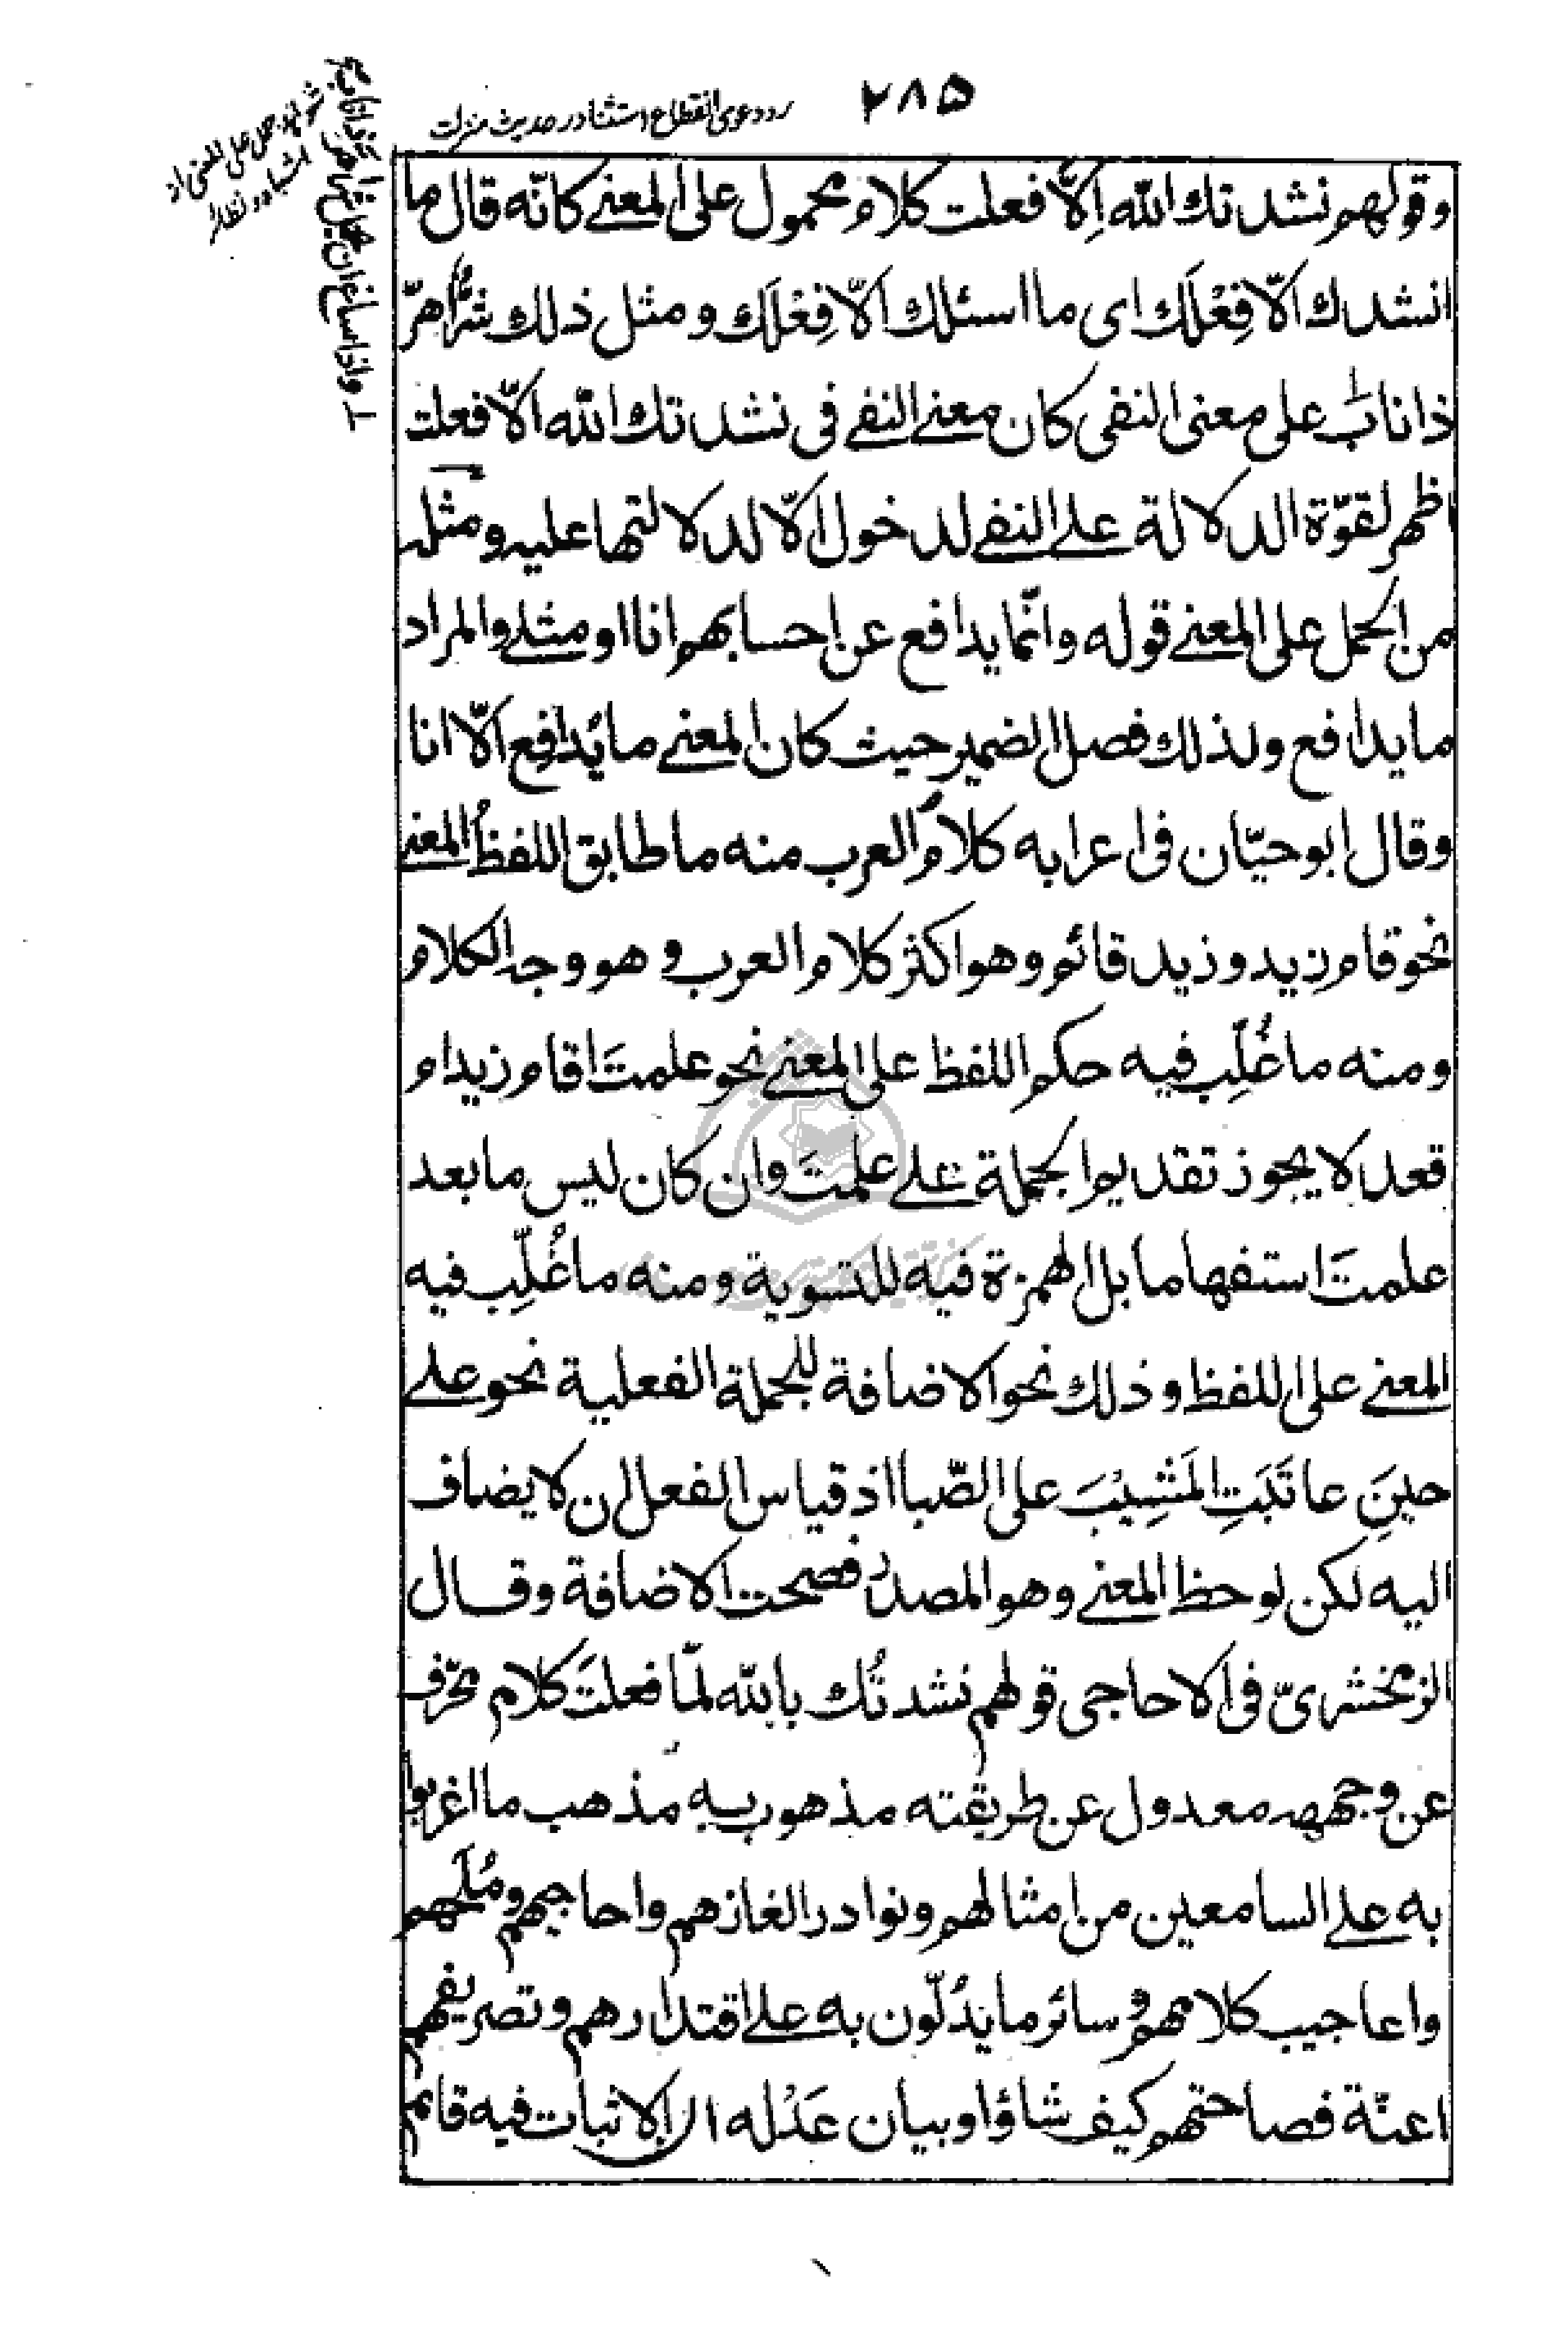 ۲۸۵
رد دعوی انقطاع استثنا در حدیث منزلت
وقولهم نشدتك الله اِلّا فعلت كلام محمول على المعنى كانّه قال ما
انشدك الّا فِعْلَك اى ما اسئلك الّا فِعْلَك ومثل ذلك شرٌّ اهرّ
ذا نابٍ على معنى النفى كان معنى النفى فى نشدتك الله الّا فعلت
اظهر لقوّة الدلالة على النفى لدخول الّا لدلالتها عليه ومثله
من الحمل على المعنى قوله وانّما يدافع عن احسابهم انا او مثلى والمراد
ما يدافع ولذلك فصل الضمير حيث كان المعنى ما يُدافِع الّا انا
وقال ابو حيّان فى اعرابه كلامُ العرب منه ما طابق اللفظُ المعنى
نحو قام زيد وزيد قائم وهو اكثر كلام العرب و هو وجه الكلام
ومنه ما غُلِّب فيه حكم اللفظ على المعنى نحو علمتَ اقام زيد ام
قعد لا يجوز تقديم الجملة على علمتَ وان كان ليس ما بعد
علمتَ استفهاما بل الهمزة فيه للتسوية ومنه ما غُلِّب فيه
المعنى على اللفظ وذلك نحو الاضافة للجملة الفعلية نحو على
حينَ عاتَبَتِ المَشِيْبَ على الصّبا اذ قياس الفعل ان لا يضاف
اليه لكن لوحظ المعنى وهو المصدر فصحت الاضافة وقال
الزمخشرىّ فى الاحاجى قولهم نشدتُك بالله لمّا فعلتَ كلام محرّف
عن وجهه معدول عن طريقته مذهوب به مذهب ما اغربوا
به على السامعين من امثالهم ونوادر الغازهم واحاجيهم ومُلَحهم
واعاجيب كلامهم و سائر ما يدُلّون به على اقتدارهم وتصريفهم
اعنّة فصاحتهم كيف شاؤا وبيان عَدْله انّ الاثبات فيه قائم